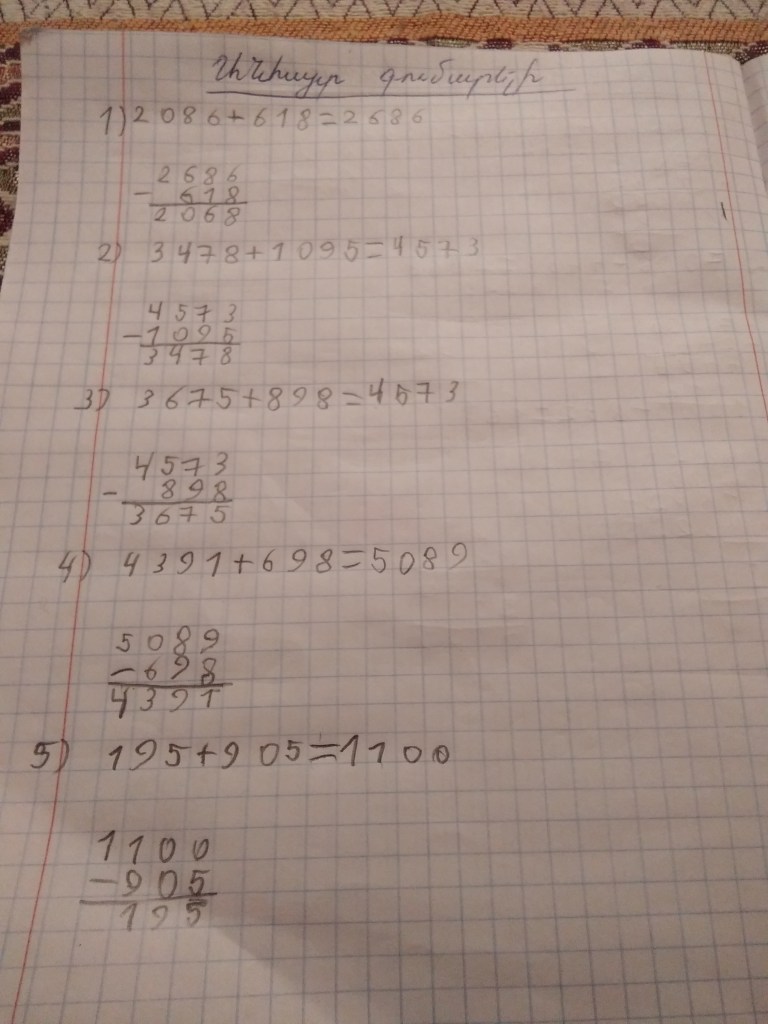 Անհայտ գումարելի
1) 2086+618=2686
2686
- 618
2068
2) 3478+1095=4573
4573
-1095
3478
3) 3675+898=4573
4573
- 898
3675
4) 4391+698=5089
5089
-698
4391
5) 195+905=1100
1100
-905
195